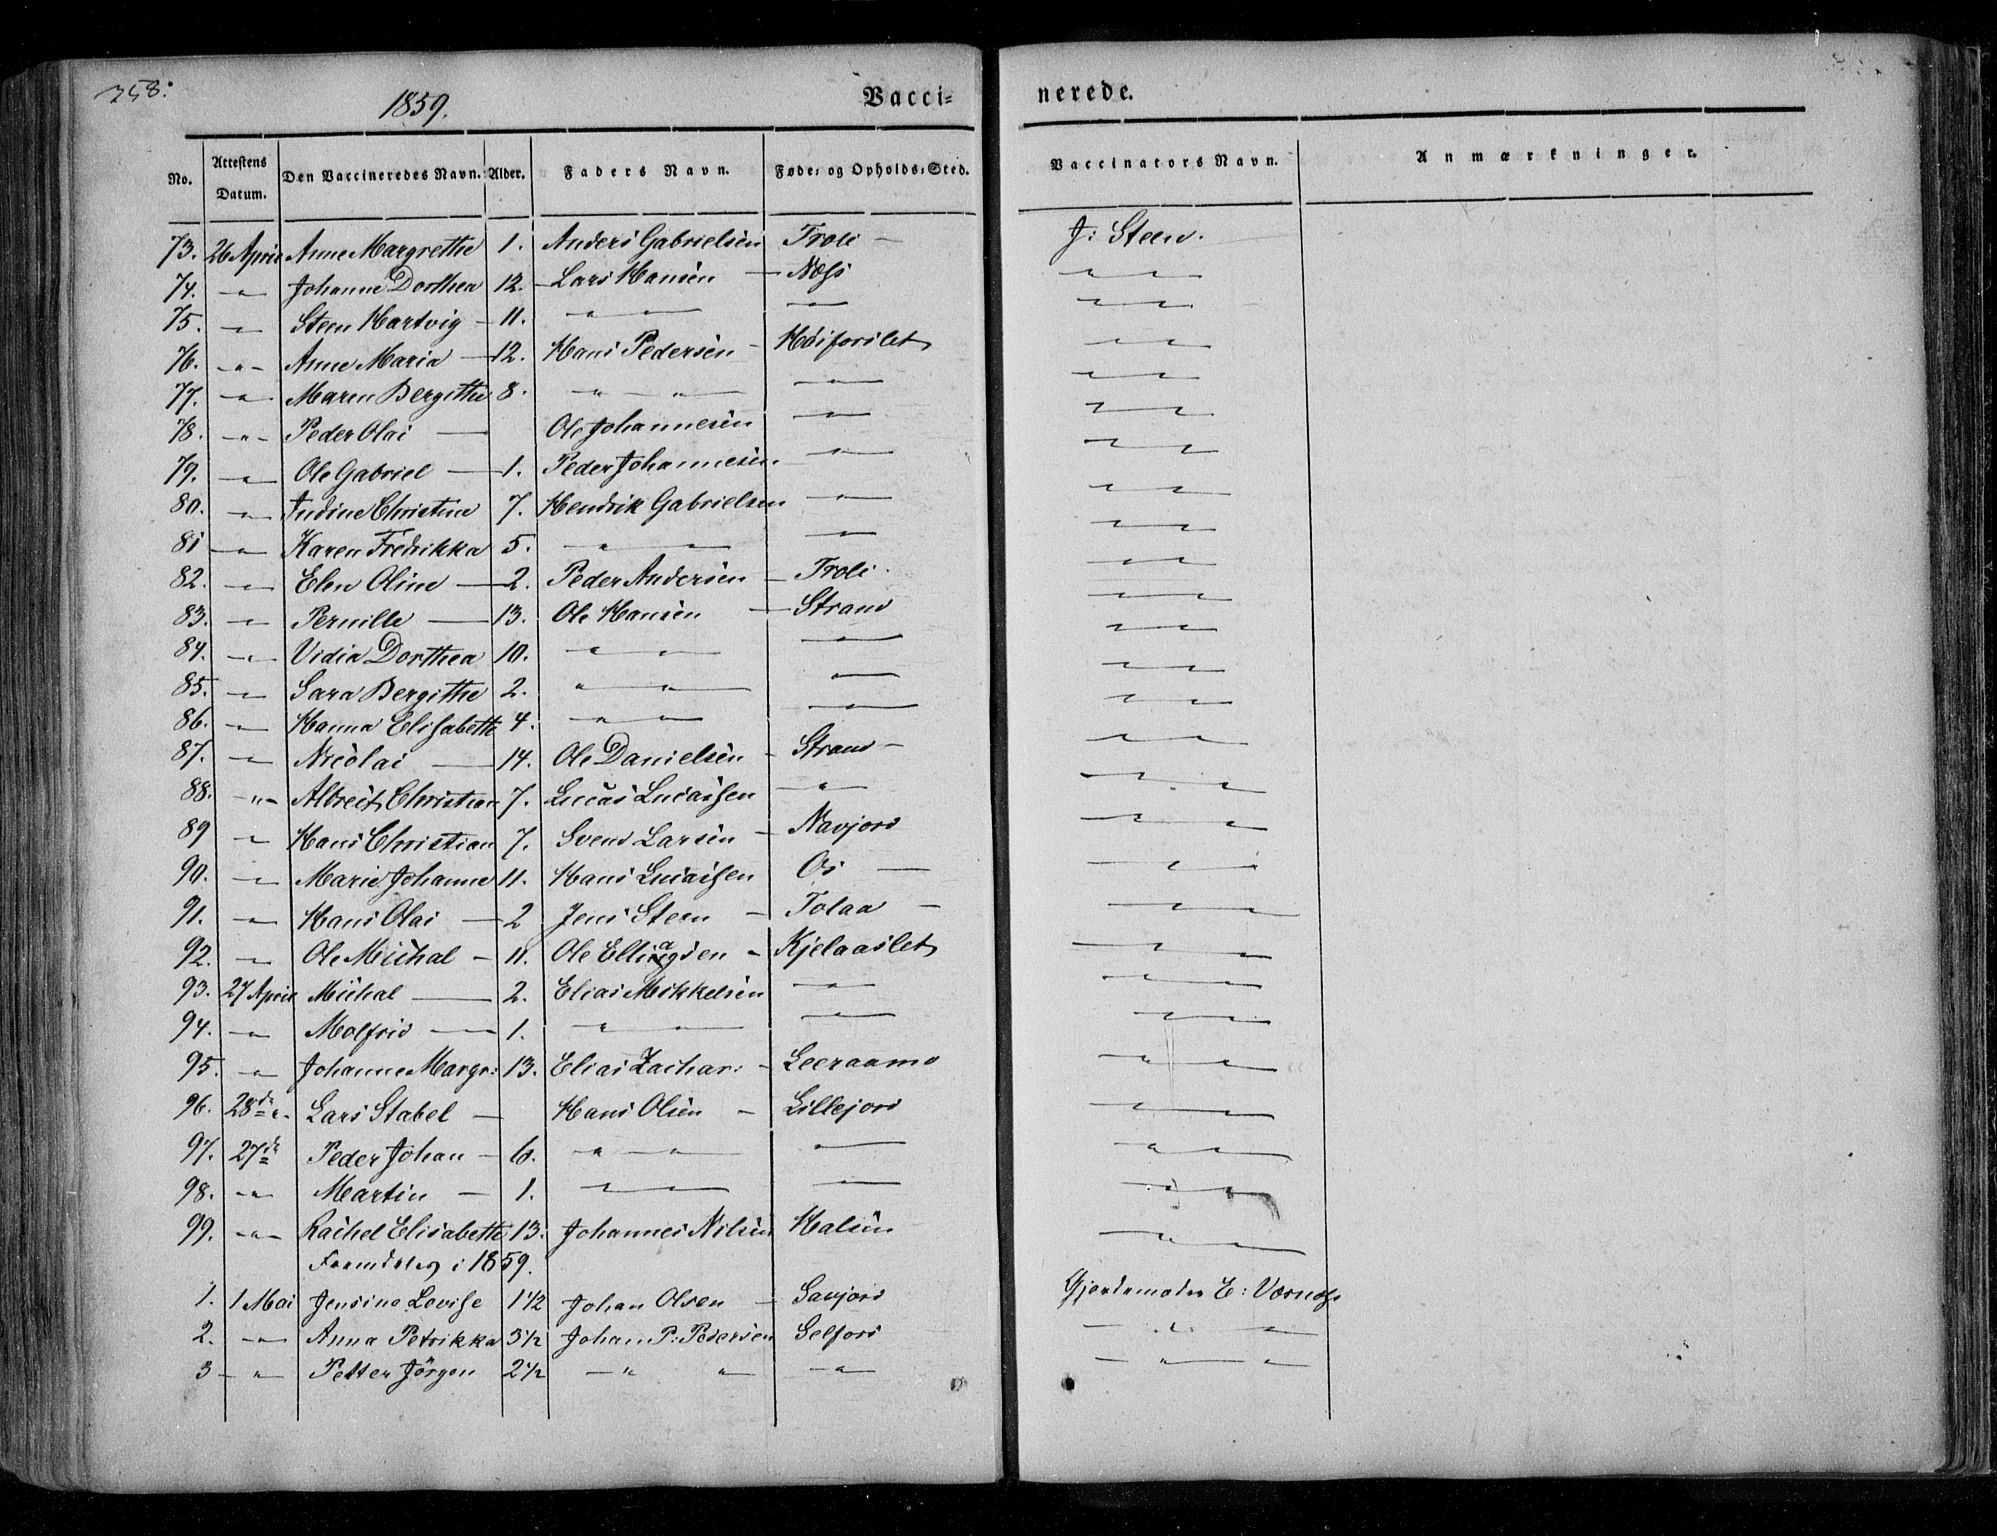 758.
1859.
Vacci-
nerede.
No. Attestens Datum. Den Vaccineredes Navn. Alder. Faders Navn. Føde- og Opholds-Sted. Vaccinators Navn. Anmærkninger.
73. 26 April Anne Margrethe 1. Anders Gabrielsen Troli — J: Steen.
74. — " — Johanne Dorthea 12. Lars Hansen — Næss — " — " —
75. — " — Steen Hartvig — 11. — " — " — — " — — " — " —
76. — " — Anne Maria — 12. Hans Pedersen — Høiforslet — " — " —
77. — " — Maren Bergithe 8. — " — " — — " — — " — " —
78. — " — Peder Olai — Ole Johannesen — " — — " — " —
79. — " — Ole Gabriel — 1. Peder Johannesen — " — — " — " —
80. — " — Indine Christine 7. Hendrik Gabrielsen — " — — " — " —
81 — " — Karen Fredrikka 5. — " — " — — " — — " — " —
82. — " — Elen Oline — 2. Peder Andersen — Troli. — " — " —
83. — " — Pernille — 13. Ole Hansen — Strand — " — " —
84. — " — Vidia Dorthea 10. — " — " — — " — — " — " —
85. — " — Sara Bergithe 2. — " — " — — " — — " — " —
86. — " — Hanna Elisabeth 4. — " — " — — " — — " — " —
87. — " — Nicolai — 14. Ole Danielsen — Strand — — " — " —
88. — " — Albreit Christian 7. Lucas Lucassen — " — — " — " —
89 — " — Hans Christian 7. Svend Larsen — Navjord — " — " —
90. — " — Marie Johanne 11. Hans Lucassen Os — — " — " —
91. — " — Hans Olai — 2 Jens Steen — Tolaa — — " — " —
92. — " — Ole Michal — 11. Ole Ellingsen — Kjelaaslet — " — " —
93. 27 April Michal — 2. Elias Mikkelsen — " — — " — " —
94. — " — Molfrid — 1. — " — " — — " — — " — " —
95. — " — Johanne Margr: 13. Elias Zachar: — Leeraamo — " — " —
96. 28de " - Lars Stabel — Hans Olsen — Lillejord — " — " —
97. 27de Peder Johan — 6. — " — " — — " — — " — " —
98. — " — Martin — 1. — " — " — — " — — " — " —
99. — " — Rachel Elisabeth 13. Johannes Nilsen Halsen — " — " —
Fremdeles i 1859.
1. 1 Mai Jensine Lovise 1½ Johan Olsen — Savjord Gjordemoder E: Værnæss
2. — " — Anna Petrikka 3½ Johan P: Pedersen Selfors — " — " —
3 — " — Petter Jörgen 2½ — " — " — — " — — " — " —